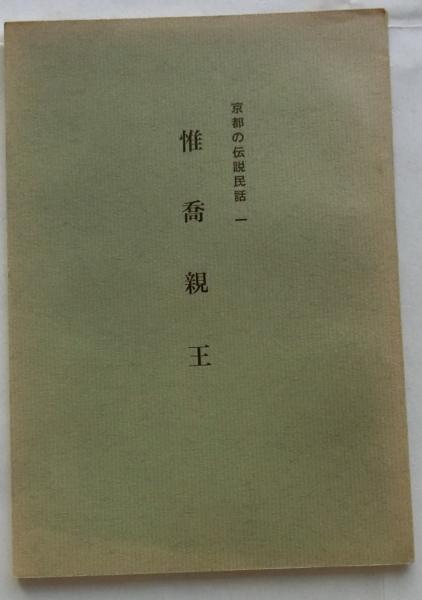 京都の伝説民話 一
惟喬親王